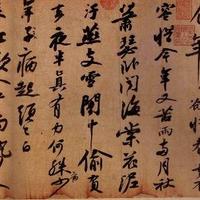 容惜今年又苦雨兩月秋
蕭瑟臥聞海棠花泥
汙燕支雪闇中偷負
去夜半真有力何殊病少
年子病起頭已白